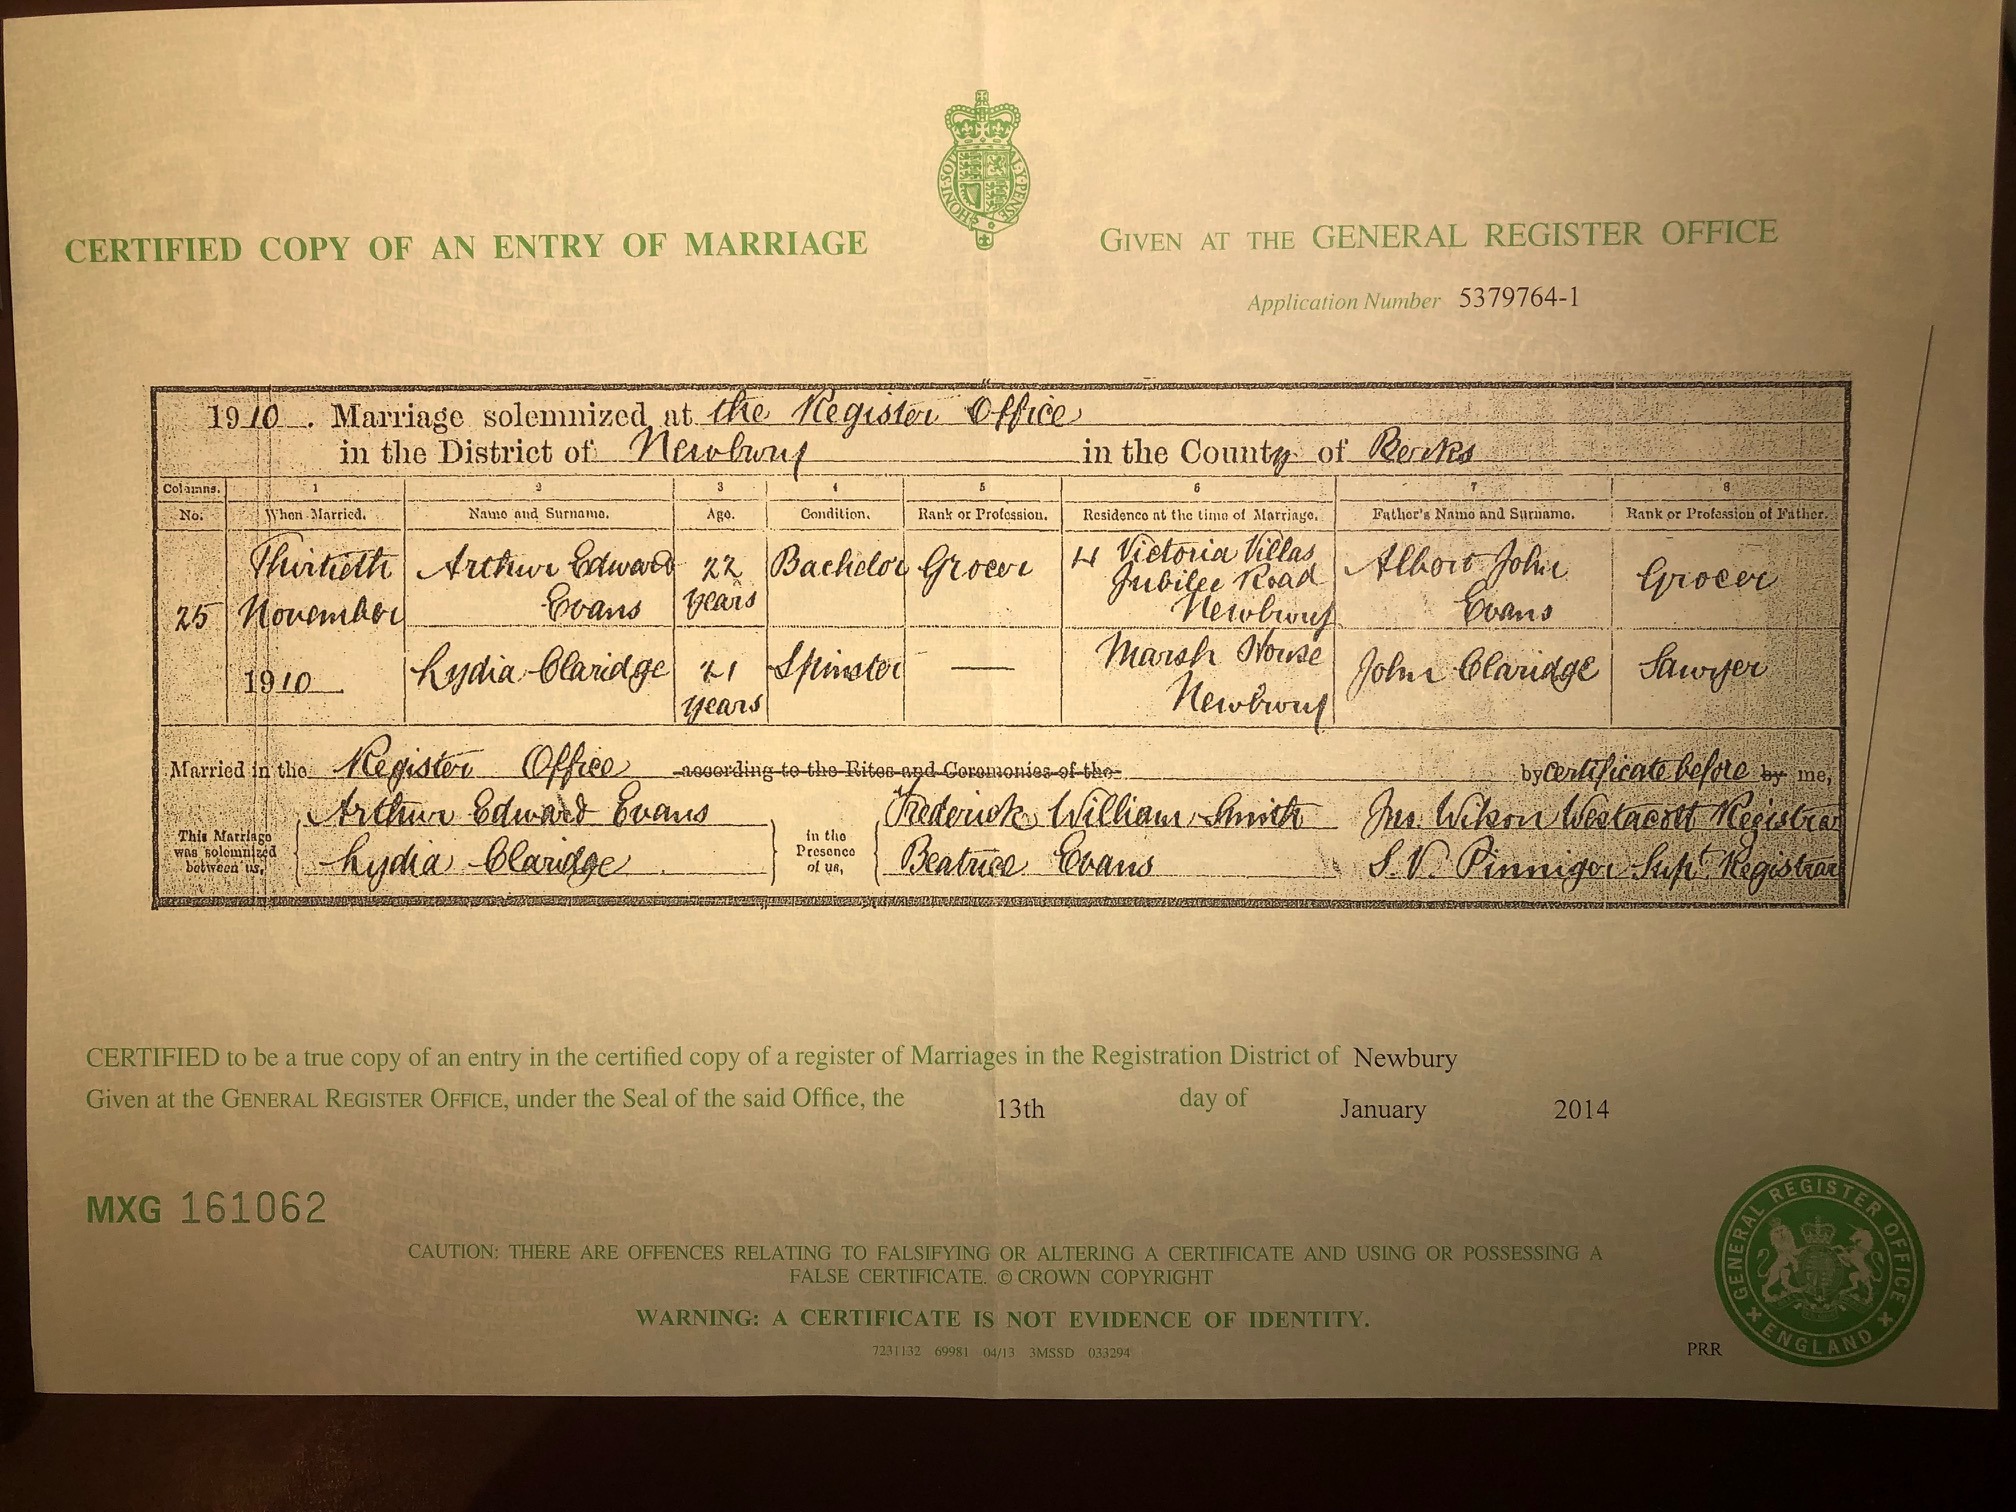 HONI·SOIT·Q AL·Y·PENSE
CERTIFIED COPY OF AN ENTRY OF MARRIAGE
GIVEN AT THE GENERAL REGISTER OFFICE
Application Number 5379764-1
1910. Marriage solemnized at the Register Office
in the District of Newbury in the County of Berks
Columns. 1 2 3 4 5 6 7 8
No. When Married. Name and Surname. Age. Condition. Rank or Profession. Residence at the time of Marriage. Father's Name and Surname. Rank or Profession of Father.
25 Thirtieth November 1910
Arthur Edward Evans 22 years Bachelor Grocer 4 Victoria Villas Jubilee Road Newbury Albert John Evans Grocer
Lydia Claridge 21 years Spinster — Marsh House Newbury John Claridge Sawyer
Married in the Register Office according to the Rites and Ceremonies of the by certificate before by me,
This Marriage was solemnized between us,
Arthur Edward Evans
Lydia Claridge
in the Presence of us,
Frederick William Smith
Beatrice Evans
Jno. Wilson Westacott Registrar
S. V. Pinniger Supt. Registrar
CERTIFIED to be a true copy of an entry in the certified copy of a register of Marriages in the Registration District of Newbury
Given at the GENERAL REGISTER OFFICE, under the Seal of the said Office, the 13th day of January 2014
MXG 161062
CAUTION: THERE ARE OFFENCES RELATING TO FALSIFYING OR ALTERING A CERTIFICATE AND USING OR POSSESSING A
FALSE CERTIFICATE. © CROWN COPYRIGHT
WARNING: A CERTIFICATE IS NOT EVIDENCE OF IDENTITY.
7231132 69981 04/13 3MSSD 033294
PRR
GENERAL REGISTER OFFICE
ENGLAND